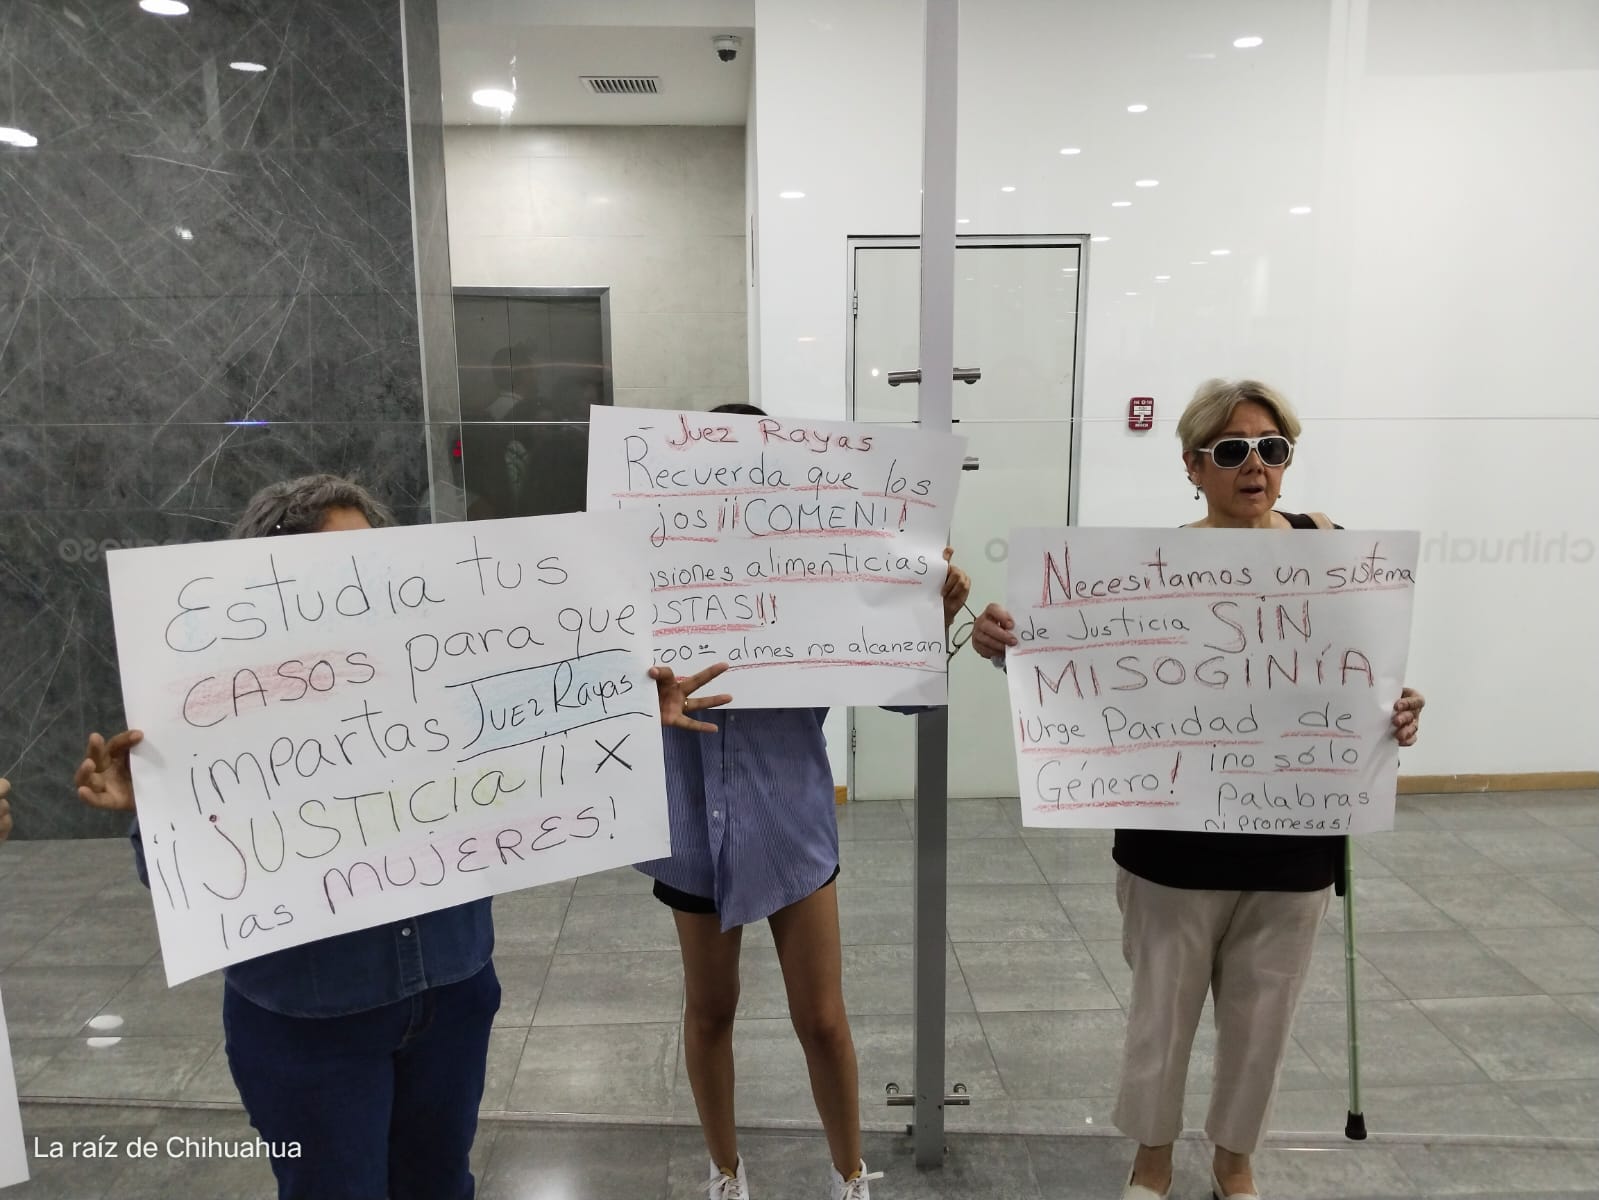 Estudia tus
CASOS para que
impartas Juez Rayas
¡¡JUSTICIA!! X
las MUJERES!
- Juez Rayas
Recuerda que los
jos ¡¡COMEN!!
siones alimenticias
USTAS!!
500 almes no alcanzan
Necesitamos un sistema
de Justicia SIN
MISOGINÍA
¡Urge Paridad de
Género! ¡no sólo
Palabras
ni promesas!
chihuah
La raíz de Chihuahua